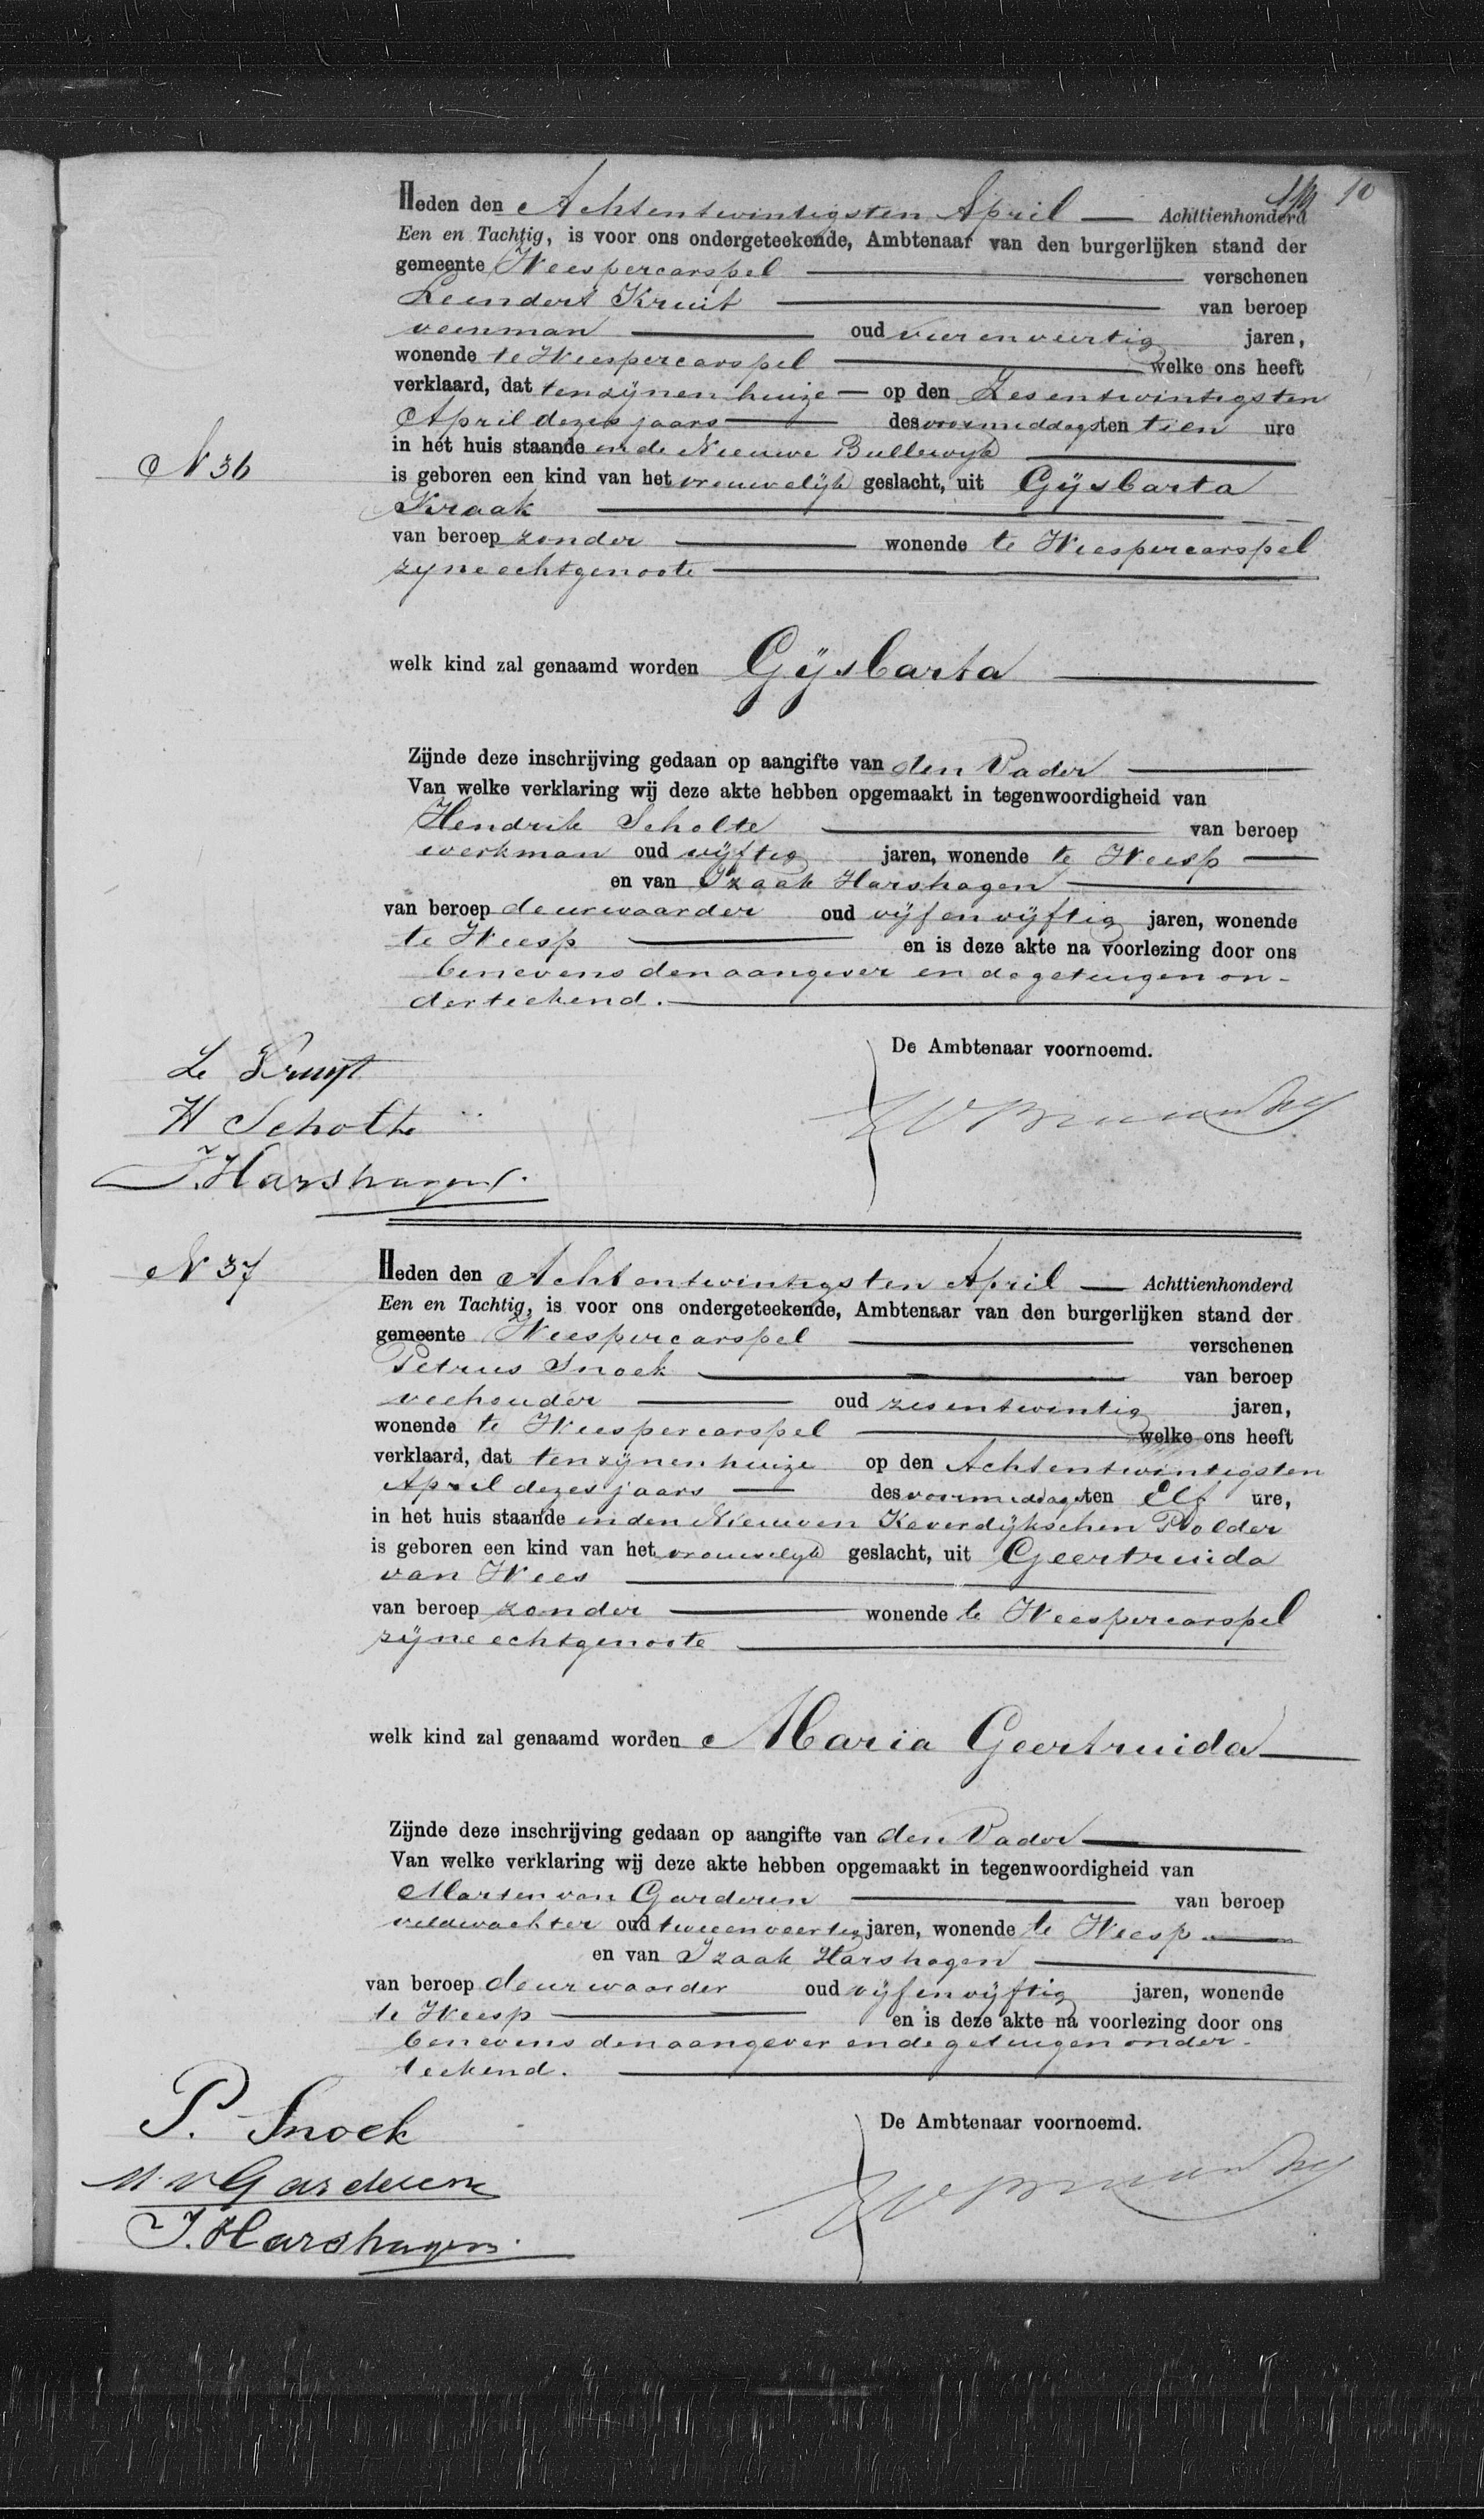 10
Heden den Achtentwintigsten April — Achttienhonderd
Een en Tachtig, is voor ons ondergeteekende, Ambtenaar van den burgerlijken stand der
gemeente Weespercarspel verschenen
Leendert Kruit van beroep
veenman oud vierenveertig jaren,
wonende te Weespercarspel welke ons heeft
verklaard, dat tenzijnenhuize — op den Zesentwintigsten
April dezes jaars des voormiddags ten tien ure
in het huis staande in de Nieuwe Bullewijk
N 36
is geboren een kind van het vrouwelijk geslacht, uit Gijsbarta
Kraak
van beroep zonder wonende te Weespercarspel
zijne echtgenoote
welk kind zal genaamd worden Gijsbarta
Zijnde deze inschrijving gedaan op aangifte van den Vader
Van welke verklaring wij deze akte hebben opgemaakt in tegenwoordigheid van
Hendrik Scholte van beroep
werkman oud vijftig jaren, wonende te Weesp
en van Izaak Harshagen
van beroep deurwaarder oud vijfenvijftig jaren, wonende
te Weesp en is deze akte na voorlezing door ons
benevens den aangever en de getuigen on-
derteekend.
De Ambtenaar voornoemd.
L Kruijt
H Scholte
J. Harshagen
N 37
Heden den Achtentwintigsten April — Achttienhonderd
Een en Tachtig, is voor ons ondergeteekende, Ambtenaar van den burgerlijken stand der
gemeente Weespercarspel verschenen
Petrus Snoek van beroep
veehouder oud zesentwintig jaren,
wonende te Weespercarspel welke ons heeft
verklaard, dat tenzijnenhuize op den Achtentwintigsten
April dezes jaars — des voormiddags ten Elf ure,
in het huis staande in den Nieuwen Keverdijkschen Polder
is geboren een kind van het vrouwelijk geslacht, uit Geertruida
van Wees
van beroep zonder wonende te Weespercarspel
zijne echtgenoote
welk kind zal genaamd worden Maria Geertruida
Zijnde deze inschrijving gedaan op aangifte van den Vader
Van welke verklaring wij deze akte hebben opgemaakt in tegenwoordigheid van
Marten van Garderen van beroep
veldwachter oud tweeenveertig jaren, wonende te Weesp
en van Izaak Harshagen
van beroep deurwaarder oud vijfenvijftig jaren, wonende
te Weesp en is deze akte na voorlezing door ons
benevens den aangever en de getuigen onder-
teekend.
De Ambtenaar voornoemd.
P. Snoek
M. v Garderen
J. Harshagen